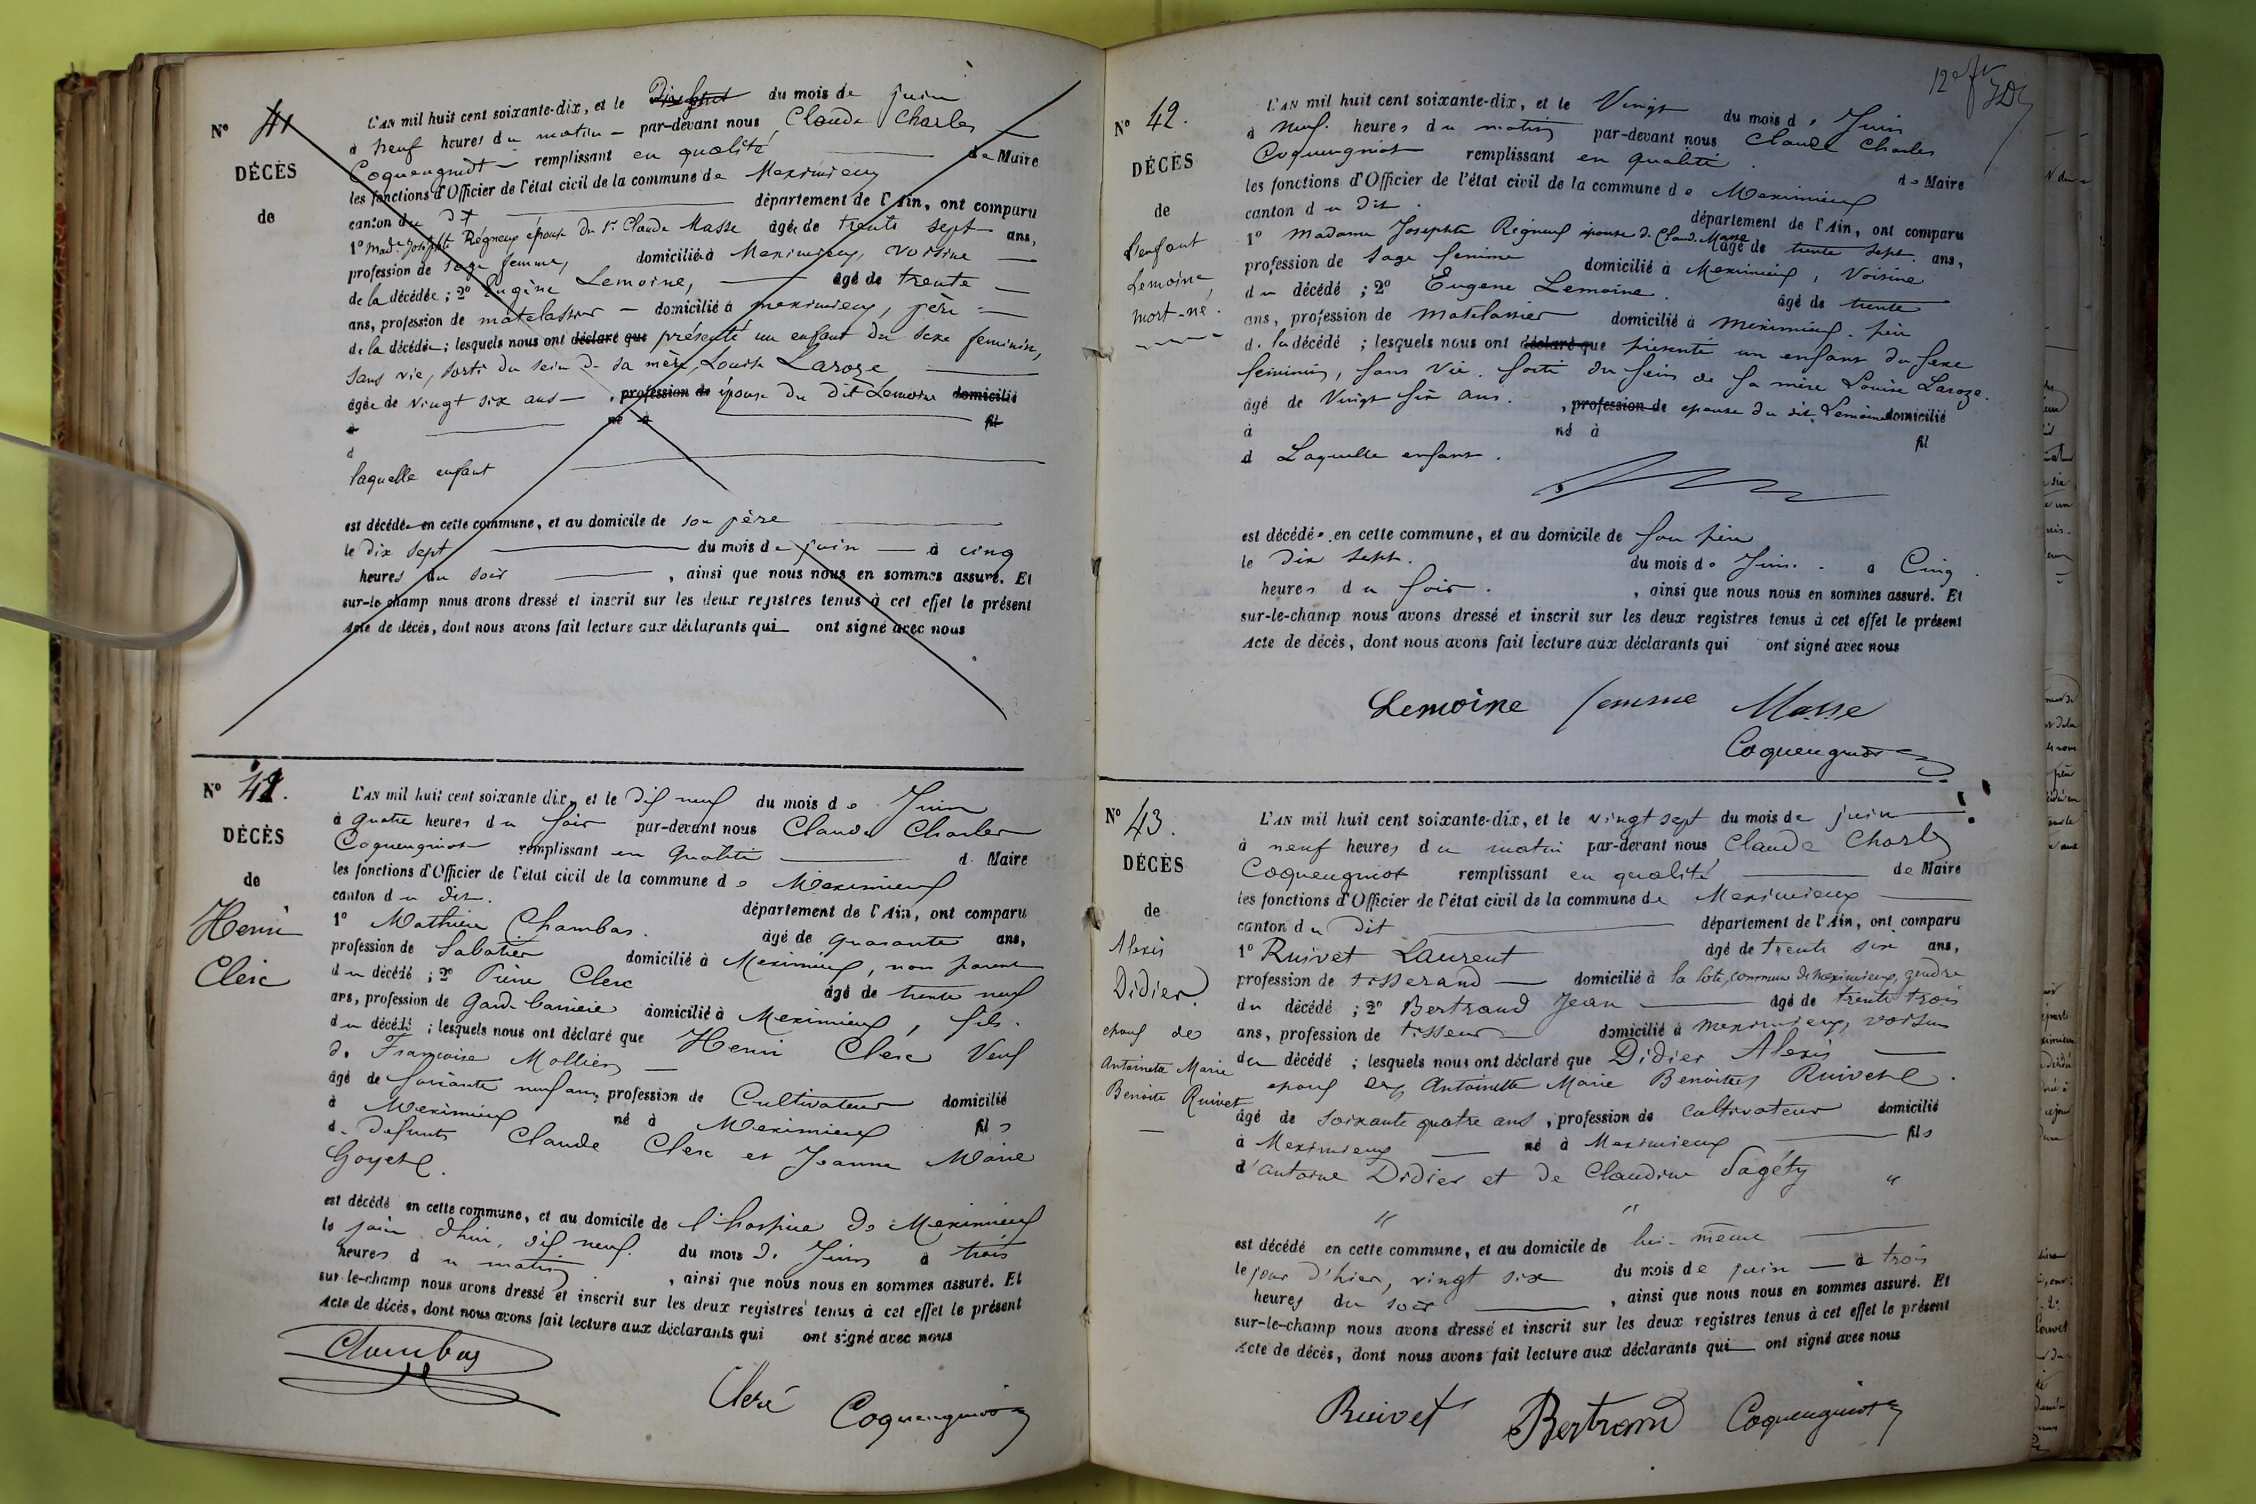 N° 41
DÉCÈS
de
L'AN mil huit cent soixante-dix, et le Dix sept du mois de juin
à neuf heures du matin – par-devant nous Claude Charles
Coquengniot – remplissant en qualité de Maire
les fonctions d'Officier de l'état civil de la commune de Meximieux
canton du dit département de l'Ain, ont comparu
1° Made Josephte Régneux épouse du Sr Claude Masse âgée de trente sept ans,
profession de sage femme, domiciliée à Meximieux, voisine
de la décédée ; 2° Eugène Lemoine, âgé de trente
ans, profession de matelassier – domicilié à meximieux, père
de la décédée ; lesquels nous ont déclaré que présenté un enfant du sexe feminin,
sans vie, sorti du sein de sa mère, Louise Laroze
âgée de vingt six ans – , profession de épouse du dit Lemoine domicilié
à né à fil
d
laquelle enfant
est décédée en cette commune, et au domicile de son père
le dix sept du mois de juin – à cinq
heures du soir , ainsi que nous nous en sommes assuré. Et
sur-le-champ nous avons dressé et inscrit sur les deux registres tenus à cet effet le présent
Acte de décès, dont nous avons fait lecture aux déclarants qui ont signé avec nous
N° 41.
DÉCÈS
de
Henri
Clerc
L'AN mil huit cent soixante dix, et le dix neuf du mois de Juin
à quatre heures du soir par-devant nous Claude Charles
Coquengniot remplissant en qualité de Maire
les fonctions d'Officier de l'état civil de la commune de Meximieux
canton du dit. département de l'Ain, ont comparu
1° Mathieu Chambas. âgé de quarante ans,
profession de Sabotier domicilié à Meximieux, non parent
du décédé ; 2° Pierre Clerc âgé de trente neuf
ans, profession de Garde barrière domicilié à Meximieux, fils.
du décédé ; lesquels nous ont déclaré que Henri Clerc Veuf
de Françoise Mollien
âgé de soixante neuf ans, profession de Cultivateur domicilié
à Meximieux né à Meximieux fils
de défunts Claude Clerc et Jeanne Marie
Goyet.
est décédé en cette commune, et au domicile de l'hospice de Meximieux
le jour d'hui, dix neuf. du mois de Juin à trois
heures du matin , ainsi que nous nous en sommes assuré. Et
sur-le-champ nous avons dressé et inscrit sur les deux registres tenus à cet effet le présent
Acte de décès, dont nous avons fait lecture aux déclarants qui ont signé avec nous
Chambas
Cleré Coquengniot
N° 42.
DÉCÈS
de
l'enfant
Lemoine
mort-né.
L'AN mil huit cent soixante-dix, et le Vingt du mois de Juin
à neuf heures du matin par-devant nous Claude Charles
Coquengniot remplissant en qualité de Maire
les fonctions d'Officier de l'état civil de la commune de Meximieux
canton du dit. département de l'Ain, ont comparu
1° Madame Josephte Régneux épouse de Claude Masse âgé de trente sept ans,
profession de sage femme domicilié à Meximieux, Voisine
du décédé ; 2° Eugene Lemoine. âgé de trente
ans, profession de Matelassier domicilié à Meximieux. père
de la décédé ; lesquels nous ont déclaré que présenté un enfant du sexe
feminin, sans vie. sorti du sein de sa mère Louise Laroze.
âgé de Vingt six ans. , profession de epouse du dit Lemoine domicilié
à né à fil
d Laquelle enfant.
est décédée en cette commune, et au domicile de son père
le dix sept. du mois de Juin. à Cinq
heures du soir. , ainsi que nous nous en sommes assuré. Et
sur-le-champ nous avons dressé et inscrit sur les deux registres tenus à cet effet le présent
Acte de décès, dont nous avons fait lecture aux déclarants qui ont signé avec nous
Lemoine femme Masse
Coquengniot
N° 43.
DÉCÈS
de
Alexis
Didier
epoux de
Antoinette Marie
Benoite Ruivet
L'AN mil huit cent soixante-dix, et le vingt sept du mois de juin
à neuf heures du matin par-devant nous Claude Charles
Coquengniot remplissant en qualité de Maire
les fonctions d'Officier de l'état civil de la commune de Meximieux
canton du Dit département de l'Ain, ont comparu
1° Ruivet Laurent âgé de trente six ans,
profession de tisserand domicilié à la Cote, commune de Meximieux, gendre
du décédé ; 2° Bertrand Jean âgé de trente trois
ans, profession de tisseur domicilié à Meximieux, voisin
du décédé ; lesquels nous ont déclaré que Didier Alexis
epoux de Antoinette Marie Benoite Ruivet.
âgé de soixante quatre ans , profession de cultivateur domicilié
à Meximieux né à Meximieux fils
d'Antoine Didier et de Claudine Sagéty "
" "
est décédé en cette commune, et au domicile de lui-même
le jour d'hier, vingt six du mois de juin – à trois
heures du soir , ainsi que nous nous en sommes assuré. Et
sur-le-champ nous avons dressé et inscrit sur les deux registres tenus à cet effet le présent
Acte de décès, dont nous avons fait lecture aux déclarants qui ont signé avec nous
Ruivet Bertrand Coquengniot